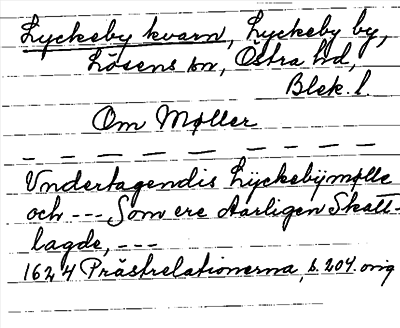 Lyckeby kvarn, Lyckeby by,
Lösens sn, Östra hd,
Blek. l.
Om Møller
— — — — — — — — —
Vndertagendis Lÿckebÿmølle
och --- Som ere Aarligen Skatt-
lagde, ---
1624 Prästrelationerna, s. 204. orig